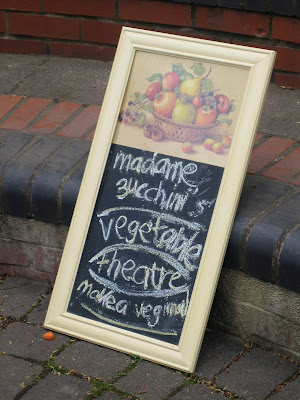 madame
zucchini's
vegetable
theatre
make a veg animal